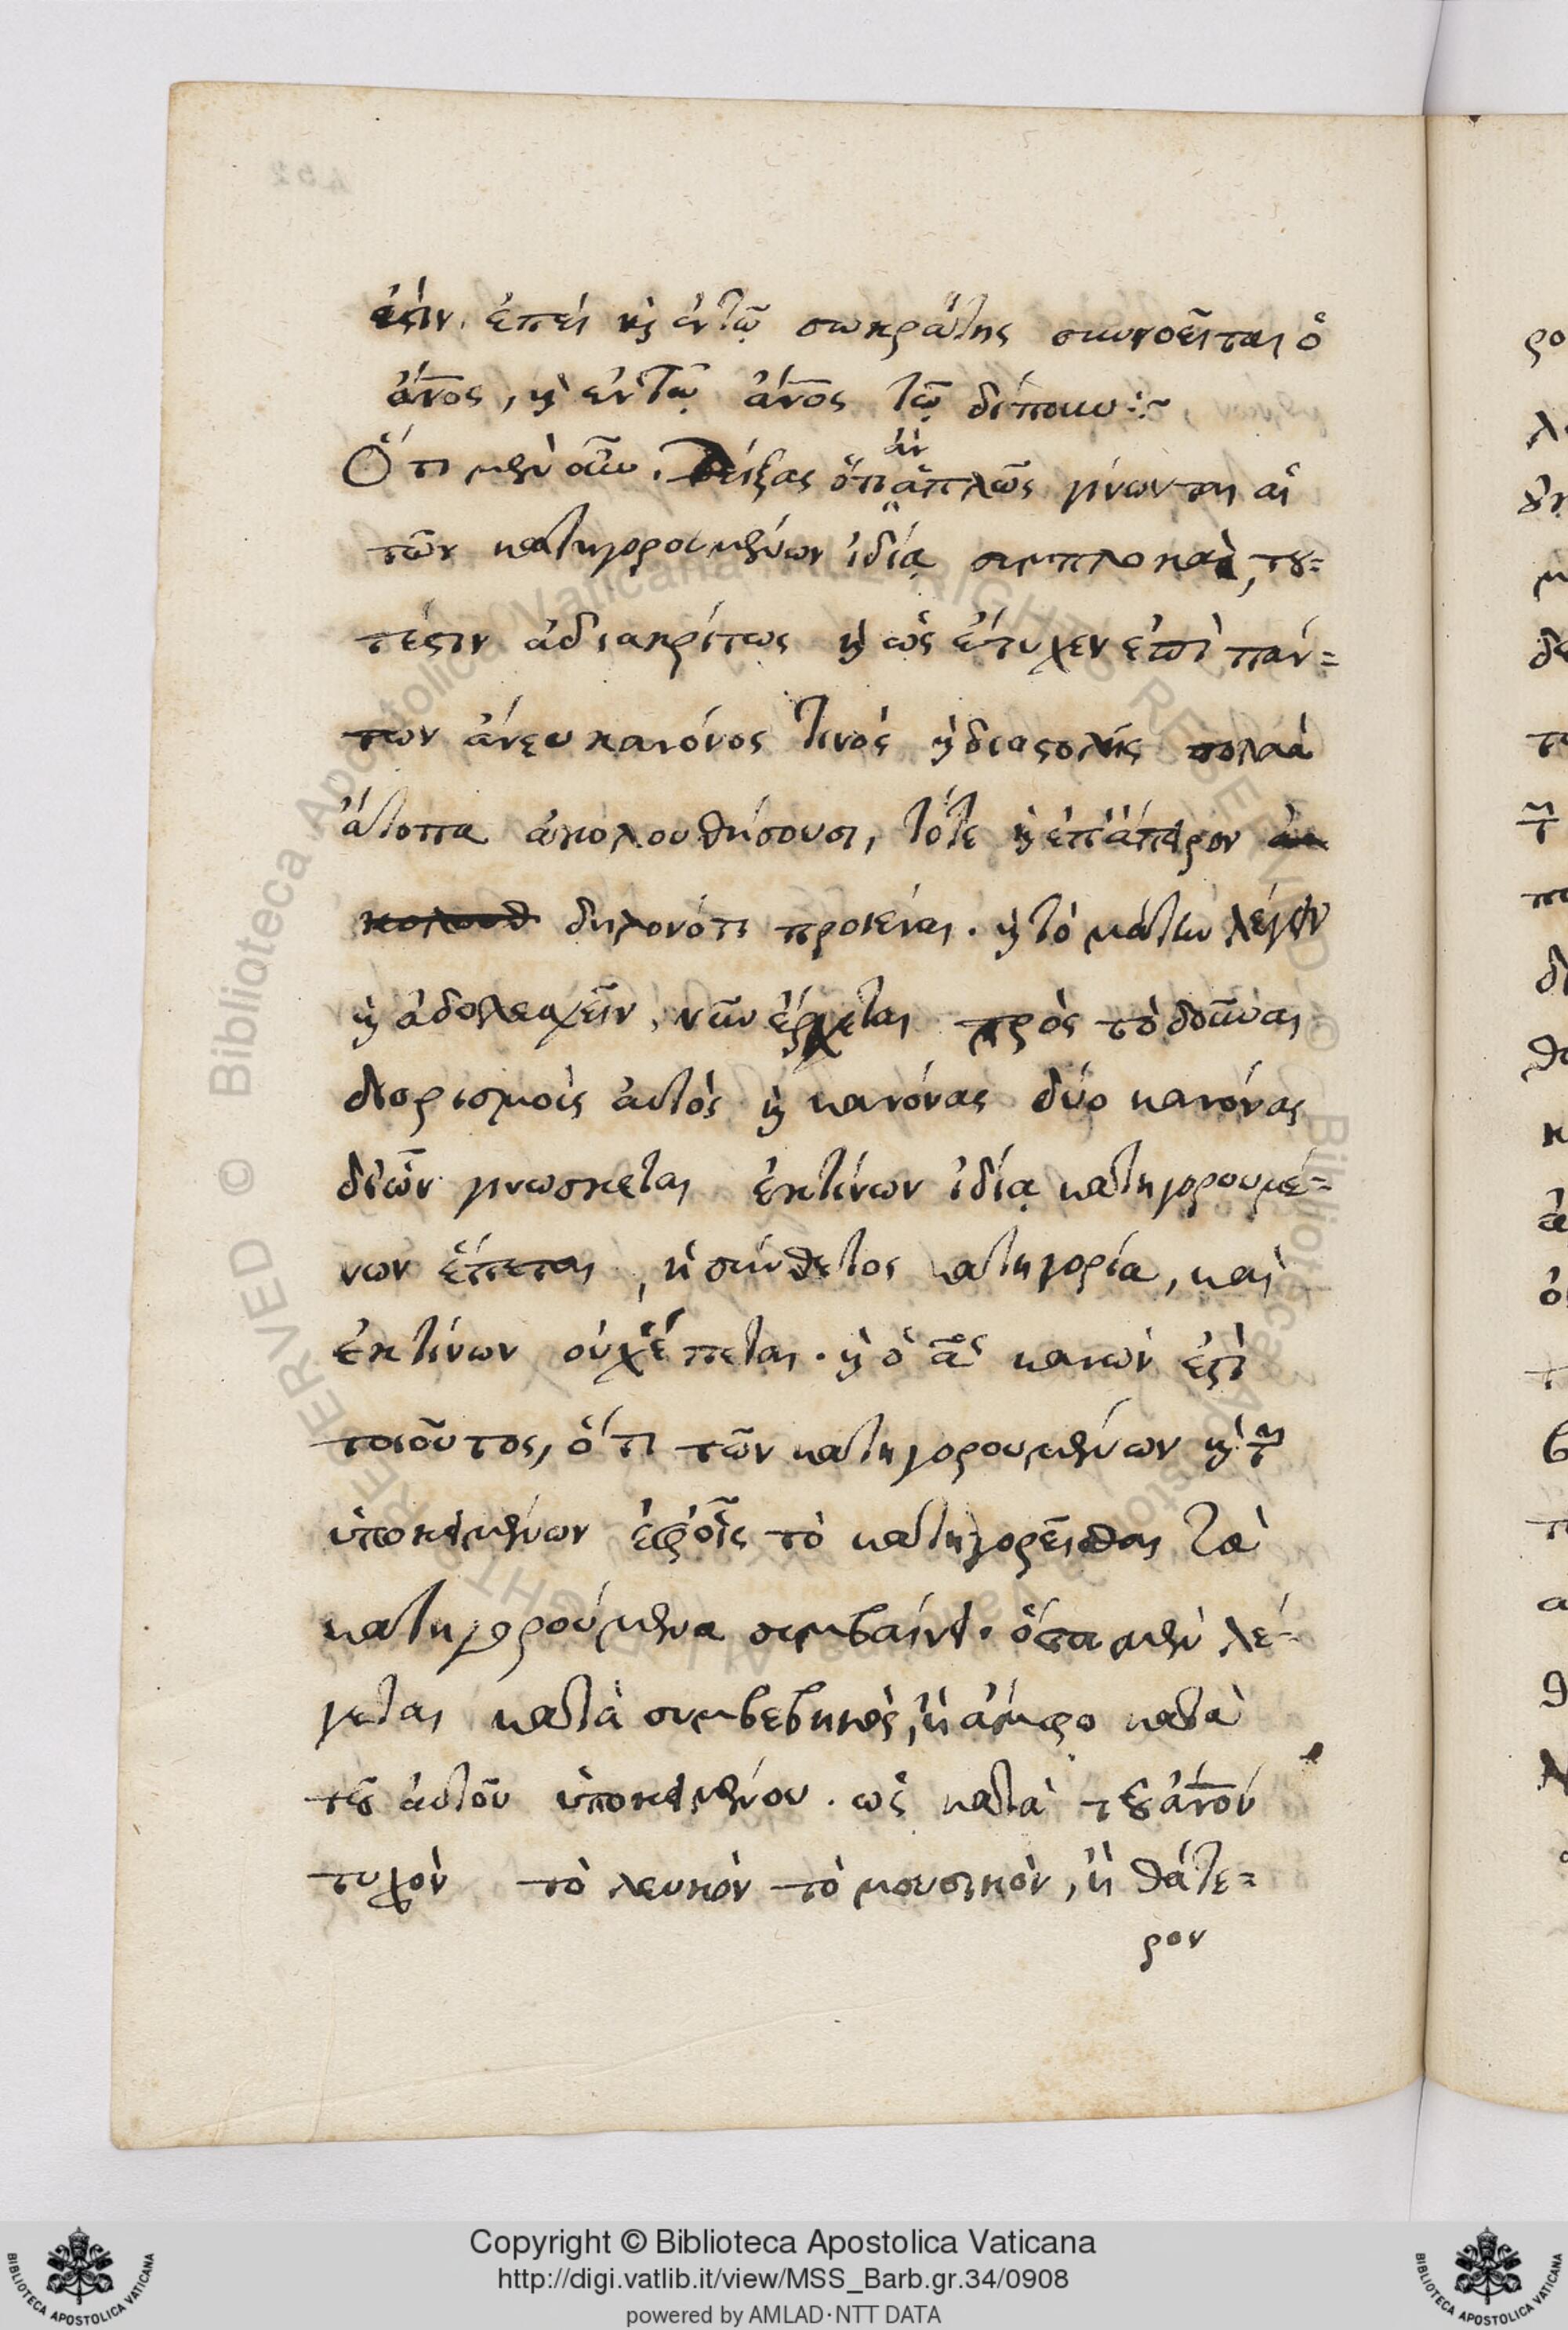 ἐστιν. ἐπεὶ καὶ ἐν τῷ σωκράτης συννοεῖται ὁ
ἄνος, καὶ ἐν τῷ ἄνος τῷ δίπουν:~
Ὅτι μὲν οὖν. Δείξας ὅτι ἂν ἁπλῶς γίνωνται αἱ
τῶν κατηγορουμένων ἰδίᾳ συμπλοκαὶ, του=
τέστιν ἀδιακρίτως καὶ ὡς ἔτυχεν ἐπὶ πάν=
των ἄνευ κανόνος τινὸς καὶ διαστολῆς πολλὰ
ἄτοπα ἀκολουθήσουσι, τότε καὶ ἐπ' ἄπειρον ἀ
κολουθ δηλονότι προιέναι. καὶ τὸ μάτην λέγειν
καὶ ἀδολεσχεῖν, νῦν ἔρχεται πρὸς τὸ δοῦναι
διορισμοὺς αὐτὸς καὶ κανόνας δύο κανόνας
δι' ὧν γινωσκεται ἐκ τίνων ἰδίᾳ κατηγορουμέ=
νων ἕπεται, ἡ σύνθετος κατηγορία, καὶ
ἐκ τίνων οὐχ ἕπεται. καὶ ὁ αος κανὼν ἐστὶ
τοιοῦτος, ὅτι τῶν κατηγορουμένων καὶ τῶν
ὑποκειμένων ἐφ' οἷς τὸ κατηγορεῖσθαι τὰ
κατηγορούμενα συμβαίνει. ὅσα μὲν λέ=
γεται κατὰ συμβεβηκὸς, ἢ ἄμφο κατὰ
τοῦ αὐτοῦ ὑποκειμένου. ὡς κατὰ τοῦ ἄνου
τυχὸν τὸ λευκὸν τὸ μουσικὸν, ἢ θάτε=
ρον
Copyright © Biblioteca Apostolica Vaticana
http://digi.vatlib.it/view/MSS_Barb.gr.34/0908
powered by AMLAD·NTT DATA